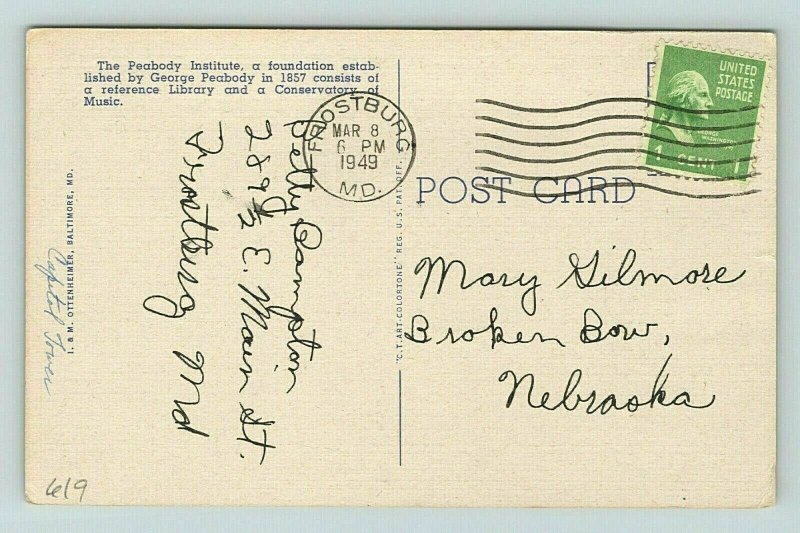 The Peabody Institute, a foundation estab-
lished by George Peabody in 1857 consists of
a reference Library and a Conservatory of
Music.
FROSTBURG
MAR 8
6 PM
1949
MD.
UNITED
STATES
POSTAGE
GEORGE
WASHINGTON
1 CENT 1
POST CARD
Betty
289 1/2 E. Main St.
Frostburg Md
Mary Gilmore
Broken Bow,
Nebraska
"C.T. ART-COLORTONE" REG. U.S. PAT. OFF.
I. & M. OTTENHEIMER, BALTIMORE, MD.
Capitol Towers
619